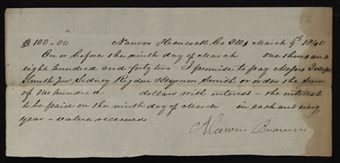 $100-00 Nauvoo Hancock Co Ills March 9th 1840
On or before the ninth day of March one thousand
eight hundred and forty two I promise to pay Messrs Joseph
Smith Jun Sidney Rigdon & Hyrum Smith or order the sum
of one hundred dollars with interest - the interest
to be paid on the ninth day of March in each and every
year - value received
Brown